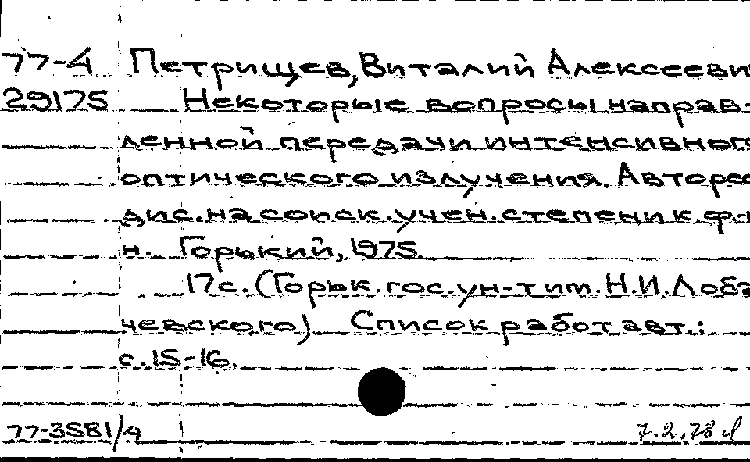 77-4 Петрищев, Виталий Алексеевич
29175 Некоторые вопросы направ-
ленной передачи интенсивного
оптического излучения. Авторе
дис. на соиск. учен. степени к. ф.-
н. Горький, 1975
17с. (Горьк. гос. ун-т им. Н.И. Лоба
чевского) Список работ авт.:
с. 15-16.
77-3581/4 7.2.78